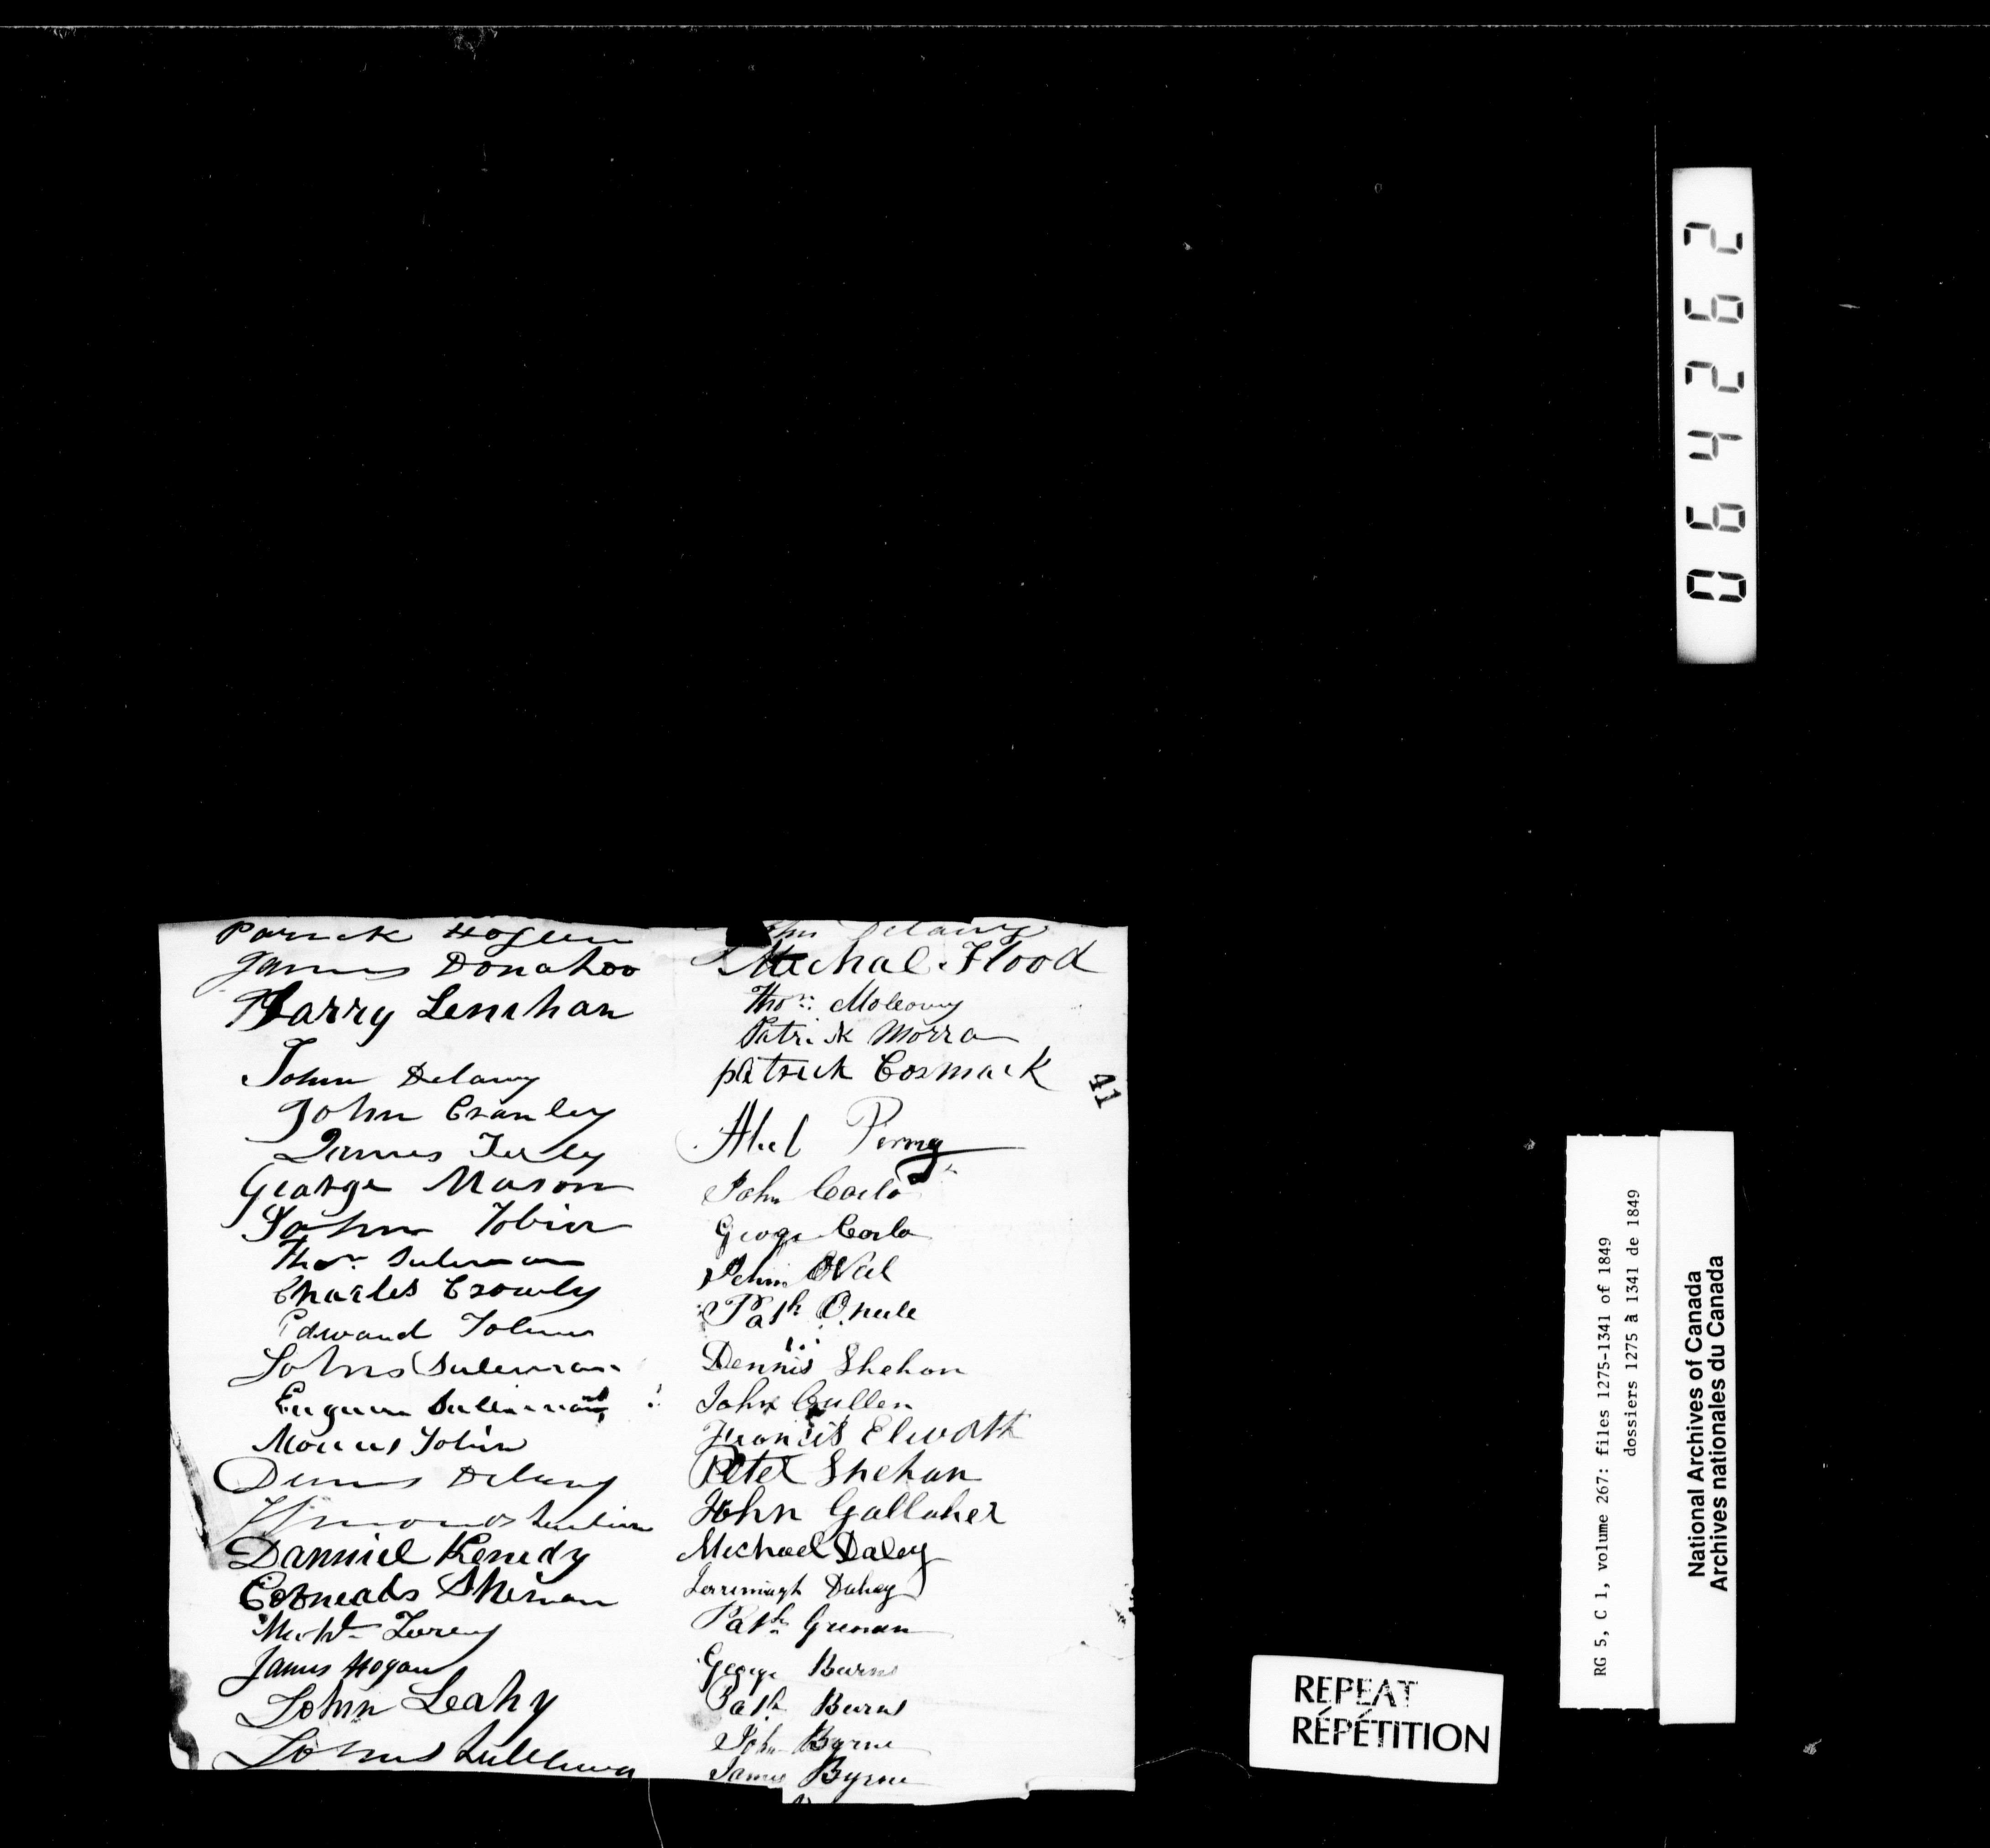 Patrick Hogan
James Donahoo
Harry Lenihan
John Delany
John Cranley
James Turley
George Mason
John Tobin
Thos. Suleman
Charles Crowly
Edward Tobin
John Suleman
Eugene Suleman
Tobin
Dennis Delany
Danniel Kenedy
Mich
James Hogan
John Leahy
John
John Delany
Michal Flood
Thos.
Patrick Morra
patrick Cormack
Abel
John Carlo
George Carlo
John ONeil
Path Oneile
Dennis Shehan
John Cullen
Francis Elworth
Peter Shehan
John Gallaher
Michael Daley
Jerrimiagh Dahey
Path Greenan
George Burns
Path Burns
John Byrne
James Byrne
41
062642
RG 5, C 1, volume 267: files 1275-1341 of 1849
dossiers 1275 à 1341 de 1849
National Archives of Canada
Archives nationales du Canada
REPEAT
RÉPÉTITION